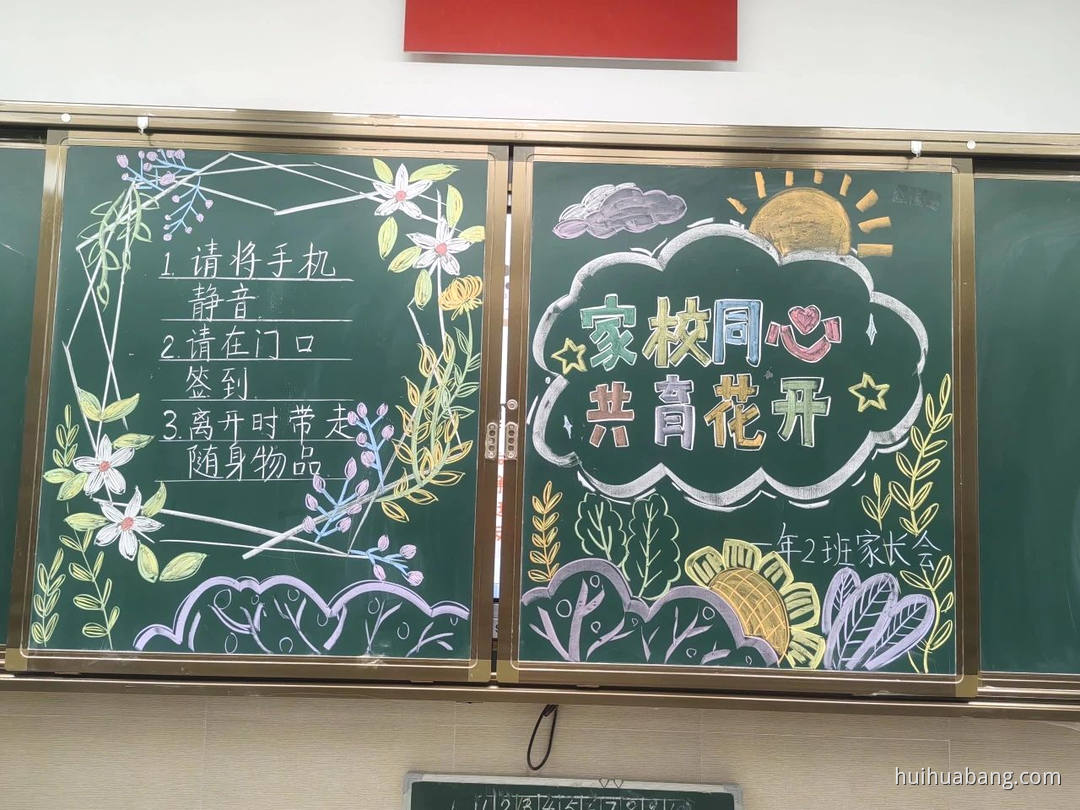 1. 请将手机
静音.
2. 请在门口
签到.
3. 离开时带走
随身物品.
家校同心
共育花开
一年2班家长会
huihuabang.com